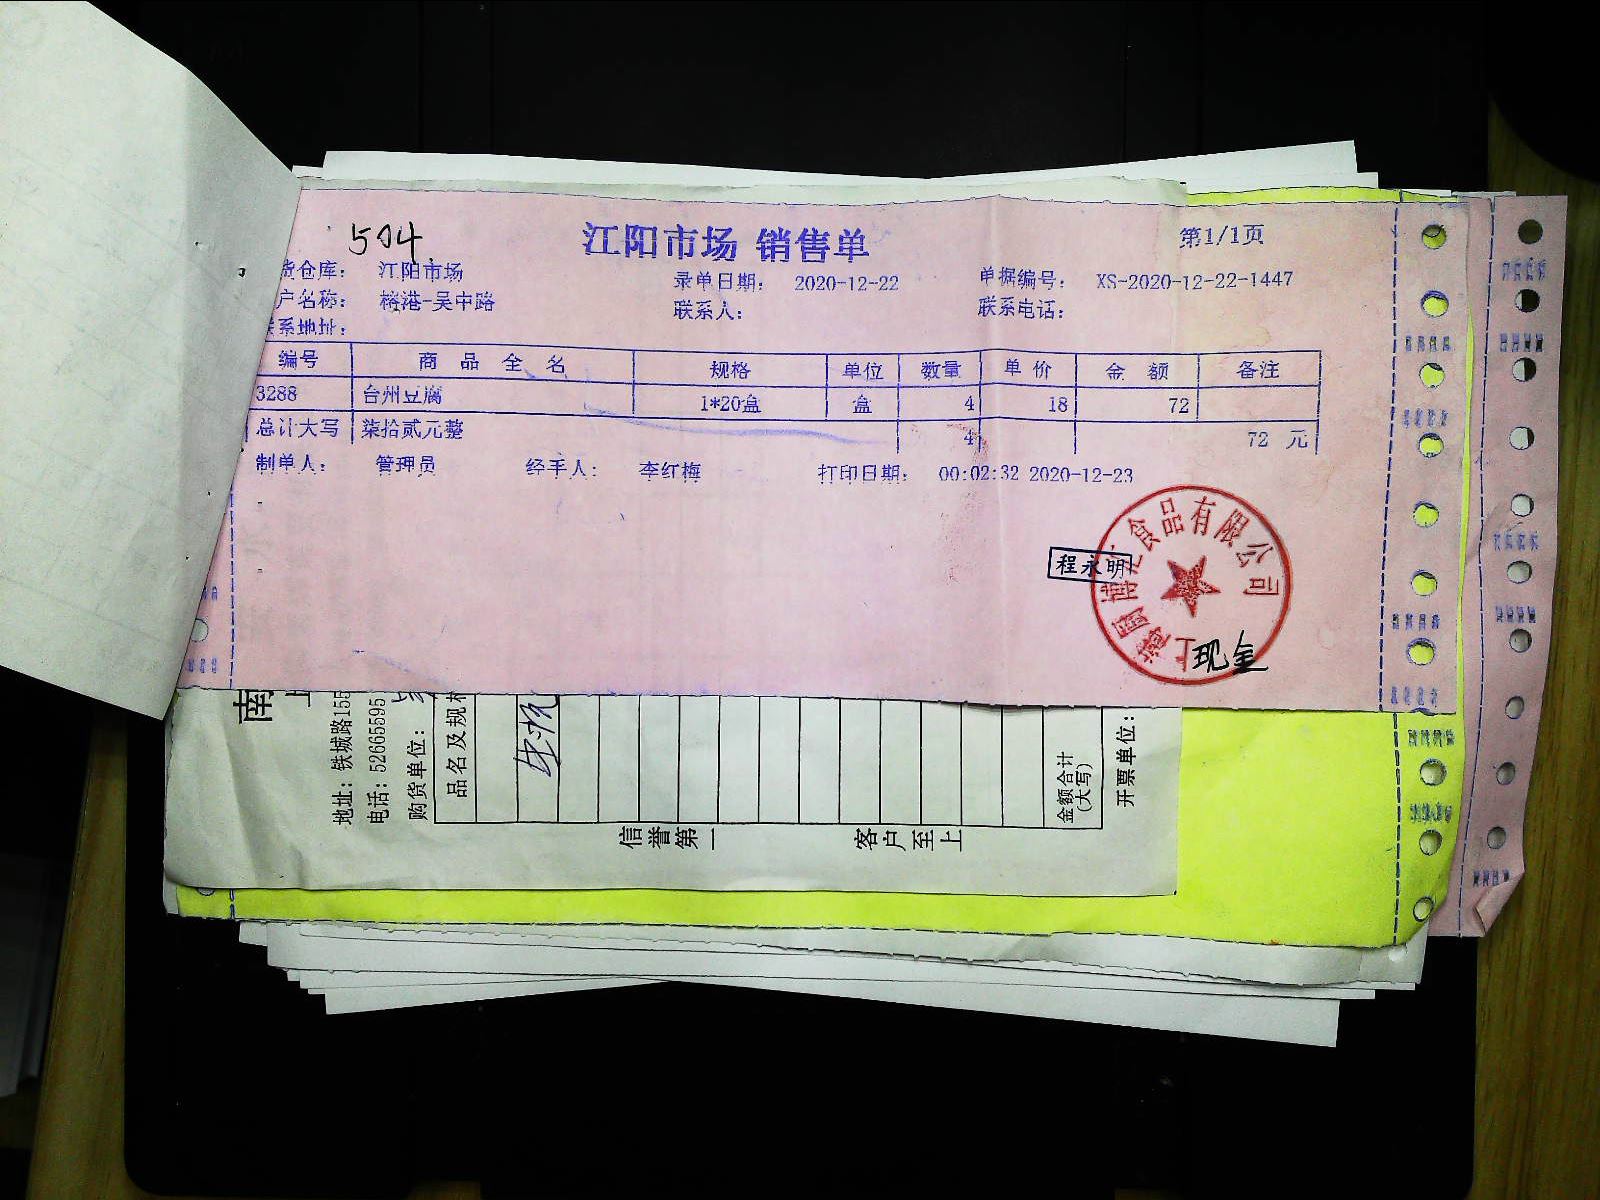 504
江阳市场 销售单
第1/1页
货仓库： 江阳市场 录单日期： 2020-12-22 单据编号： XS-2020-12-22-1447
户名称： 榕港-吴中路 联系人： 联系电话：
系地址：
编号 商品全名 规格 单位 数量 单价 金额 备注
3288 台州豆腐 1*20盒 盒 4 18 72
总计大写 柒拾贰元整 4 72 元
制单人： 管理员 经手人： 李红梅 打印日期： 00:02:32 2020-12-23
程永明
食品有限公司
现金
南
上
地址：铁城路155
电话：52665595
购货单位：
品名及规格
金额合计
(大写)
开票单位：
信誉第一 客户至上